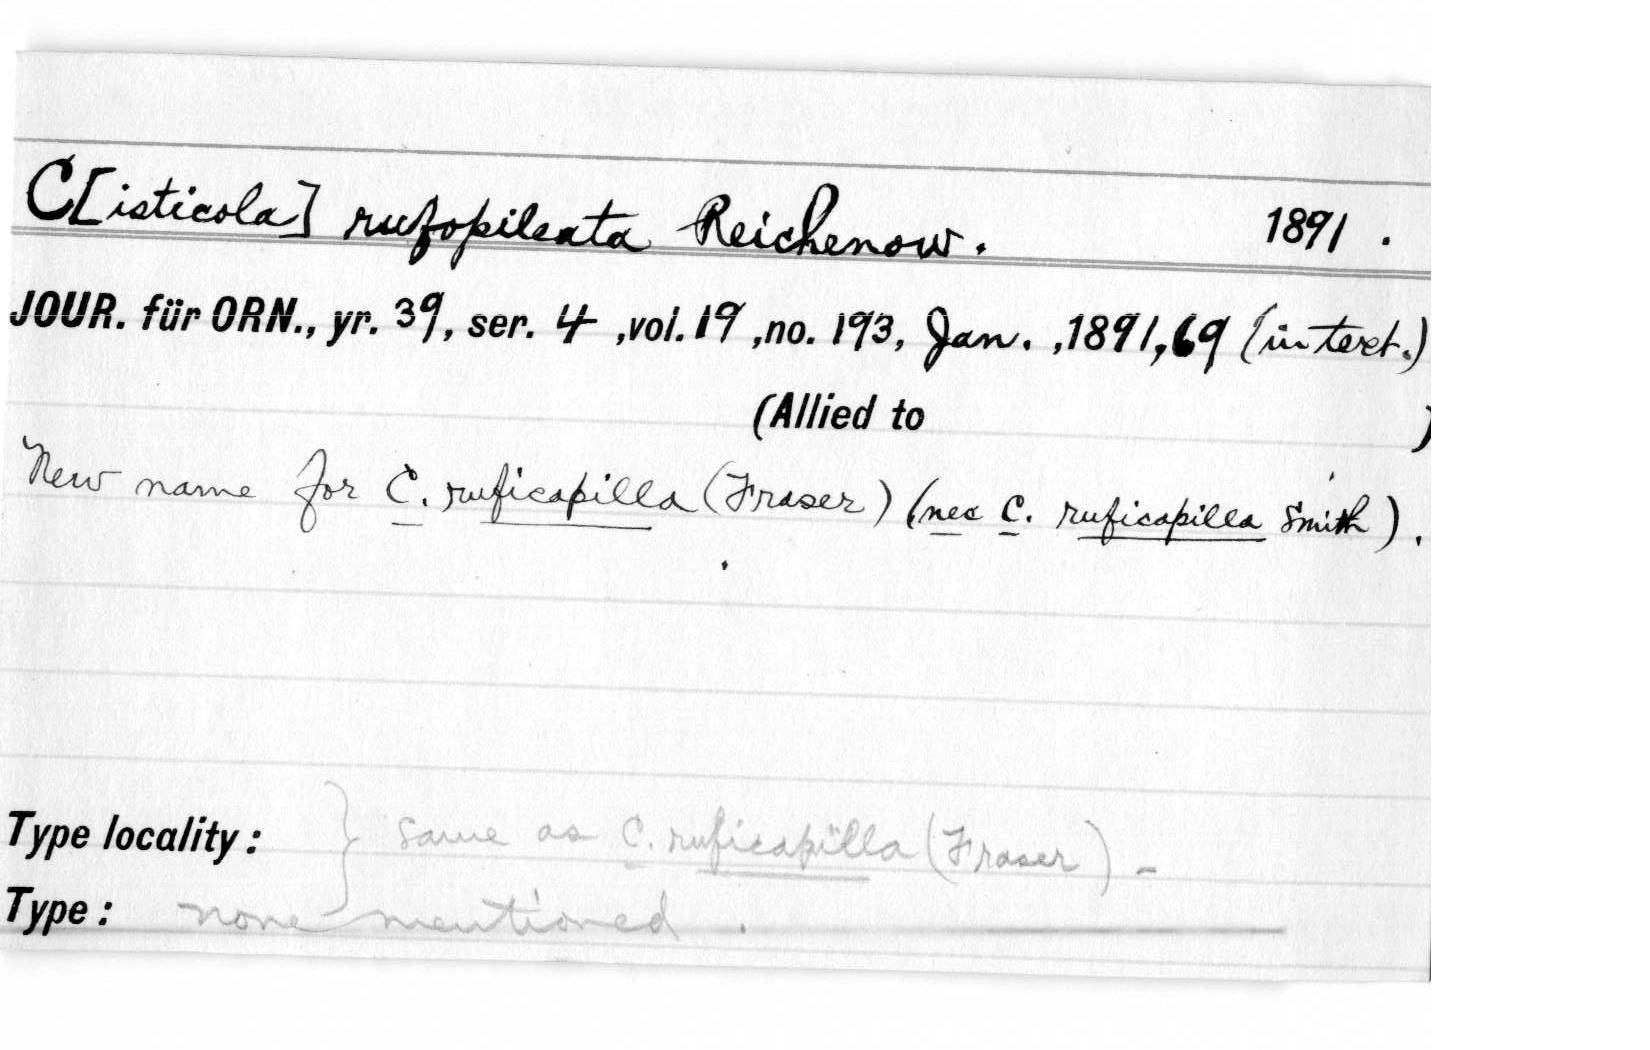 C[isticola] rufopileata Reichenow. 1891.
JOUR. für ORN., yr. 39, ser. 4, vol. 19, no. 193, Jan., 1891, 69 (in text.)
(Allied to )
New name for C. ruficapilla (Fraser) (nec C. ruficapilla Smith).
Type locality: } same as C. ruficapilla (Fraser) -
Type: none mentioned.